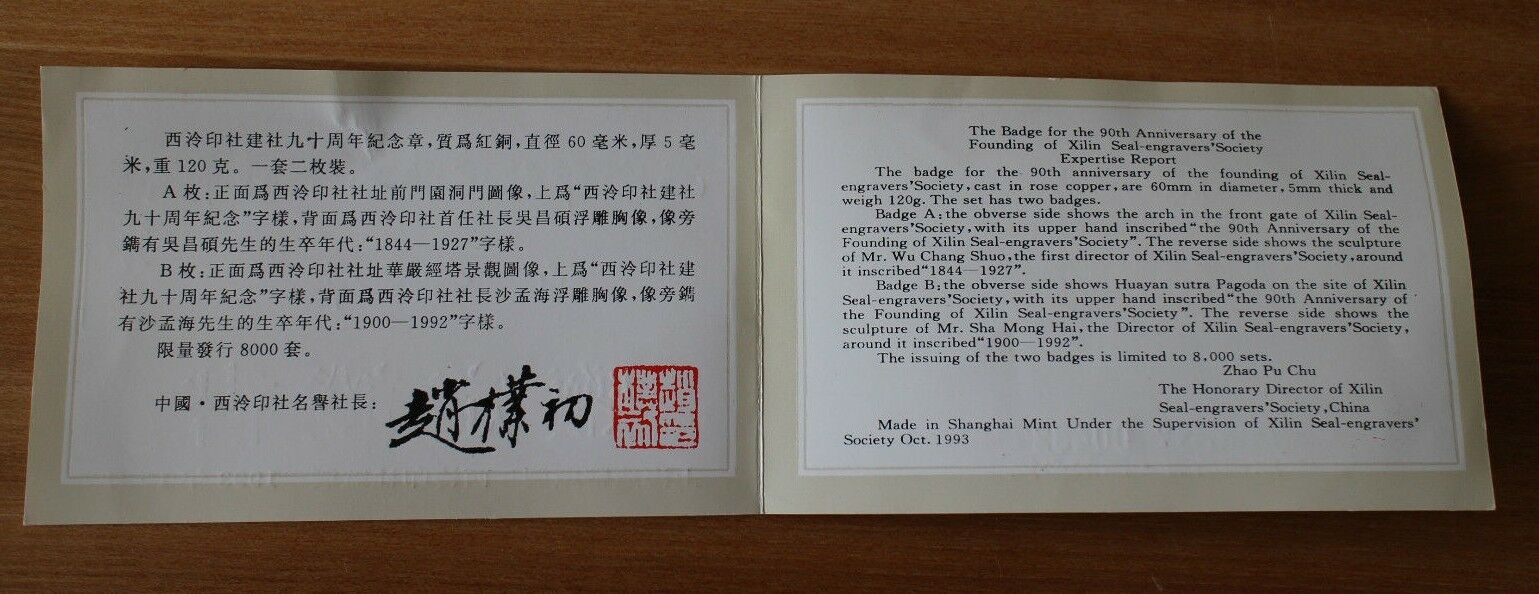 西泠印社建社九十周年紀念章，質爲紅銅，直徑60毫米，厚5毫
米，重120克。一套二枚裝。
A枚：正面爲西泠印社社址前門園洞門圖像，上爲“西泠印社建社
九十周年紀念”字樣，背面爲西泠印社首任社長吳昌碩浮雕胸像，像旁
鐫有吳昌碩先生的生卒年代：“1844—1927”字樣。
B枚：正面爲西泠印社社址華嚴經塔景觀圖像，上爲“西泠印社建
社九十周年紀念”字樣，背面爲西泠印社社長沙孟海浮雕胸像，像旁鐫
有沙孟海先生的生卒年代：“1900—1992”字樣。
限量發行8000套。
中國·西泠印社名譽社長：趙樸初
The Badge for the 90th Anniversary of the
Founding of Xilin Seal-engravers'Society
Expertise Report
The badge for the 90th anniversary of the founding of Xilin Seal-
engravers'Society, cast in rose copper, are 60mm in diameter, 5mm thick and
weigh 120g. The set has two badges.
Badge A: the obverse side shows the arch in the front gate of Xilin Seal-
engravers'Society, with its upper hand inscribed“the 90th Anniversary of the
Founding of Xilin Seal-engravers'Society”. The reverse side shows the sculpture
of Mr. Wu Chang Shuo, the first director of Xilin Seal-engravers'Society, around
it inscribed“1844—1927”.
Badge B; the obverse side shows Huayan sutra Pagoda on the site of Xilin
Seal-engravers'Society, with its upper hand inscribed“the 90th Anniversary of
the Founding of Xilin Seal-engravers'Society”. The reverse side shows the
sculpture of Mr. Sha Mong Hai, the Director of Xilin Seal-engravers'Society,
around it inscribed“1900—1992”.
The issuing of the two badges is limited to 8,000 sets.
Zhao Pu Chu
The Honorary Director of Xilin
Seal-engravers'Society, China
Made in Shanghai Mint Under the Supervision of Xilin Seal-engravers'
Society Oct. 1993